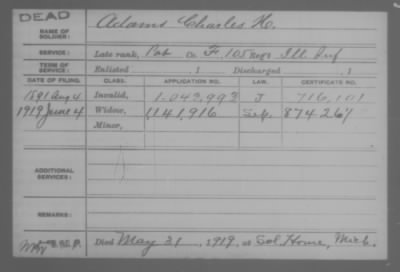 DEAD
NAME OF SOLDIER: Adams Charles H.
SERVICE: Late rank, Pvt Co. F, 105 Regt Ill. Inf
TERM OF SERVICE: Enlisted 1 Discharged , 1
DATE OF FILING. CLASS. APPLICATION NO. LAW. CERTIFICATE NO.
1891 Aug 4 Invalid, 1.043,993 J 716,101
1919 June 4 Widow, 1141,916 874261
Minor,
ADDITIONAL SERVICES:
REMARKS:
Died May 31, 1919, at Sol. Home, Mich.